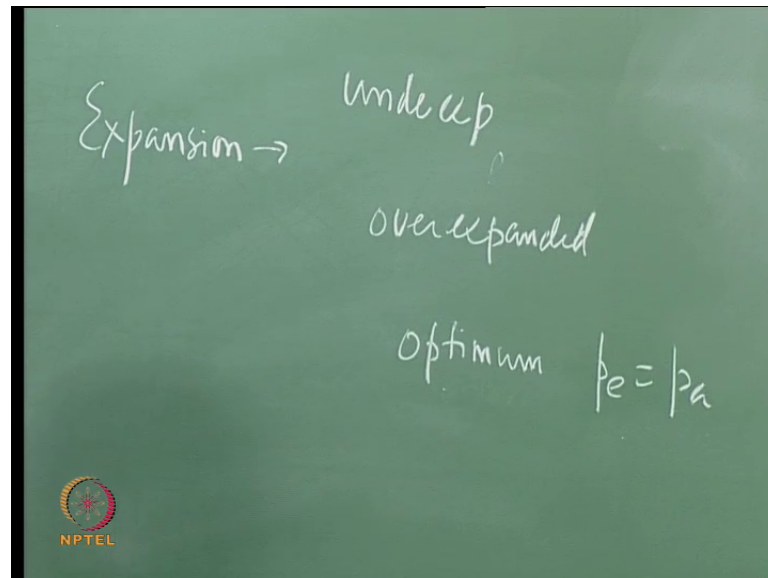 Expansion →
underexp
overexpanded
optimum pe = pa
NPTEL